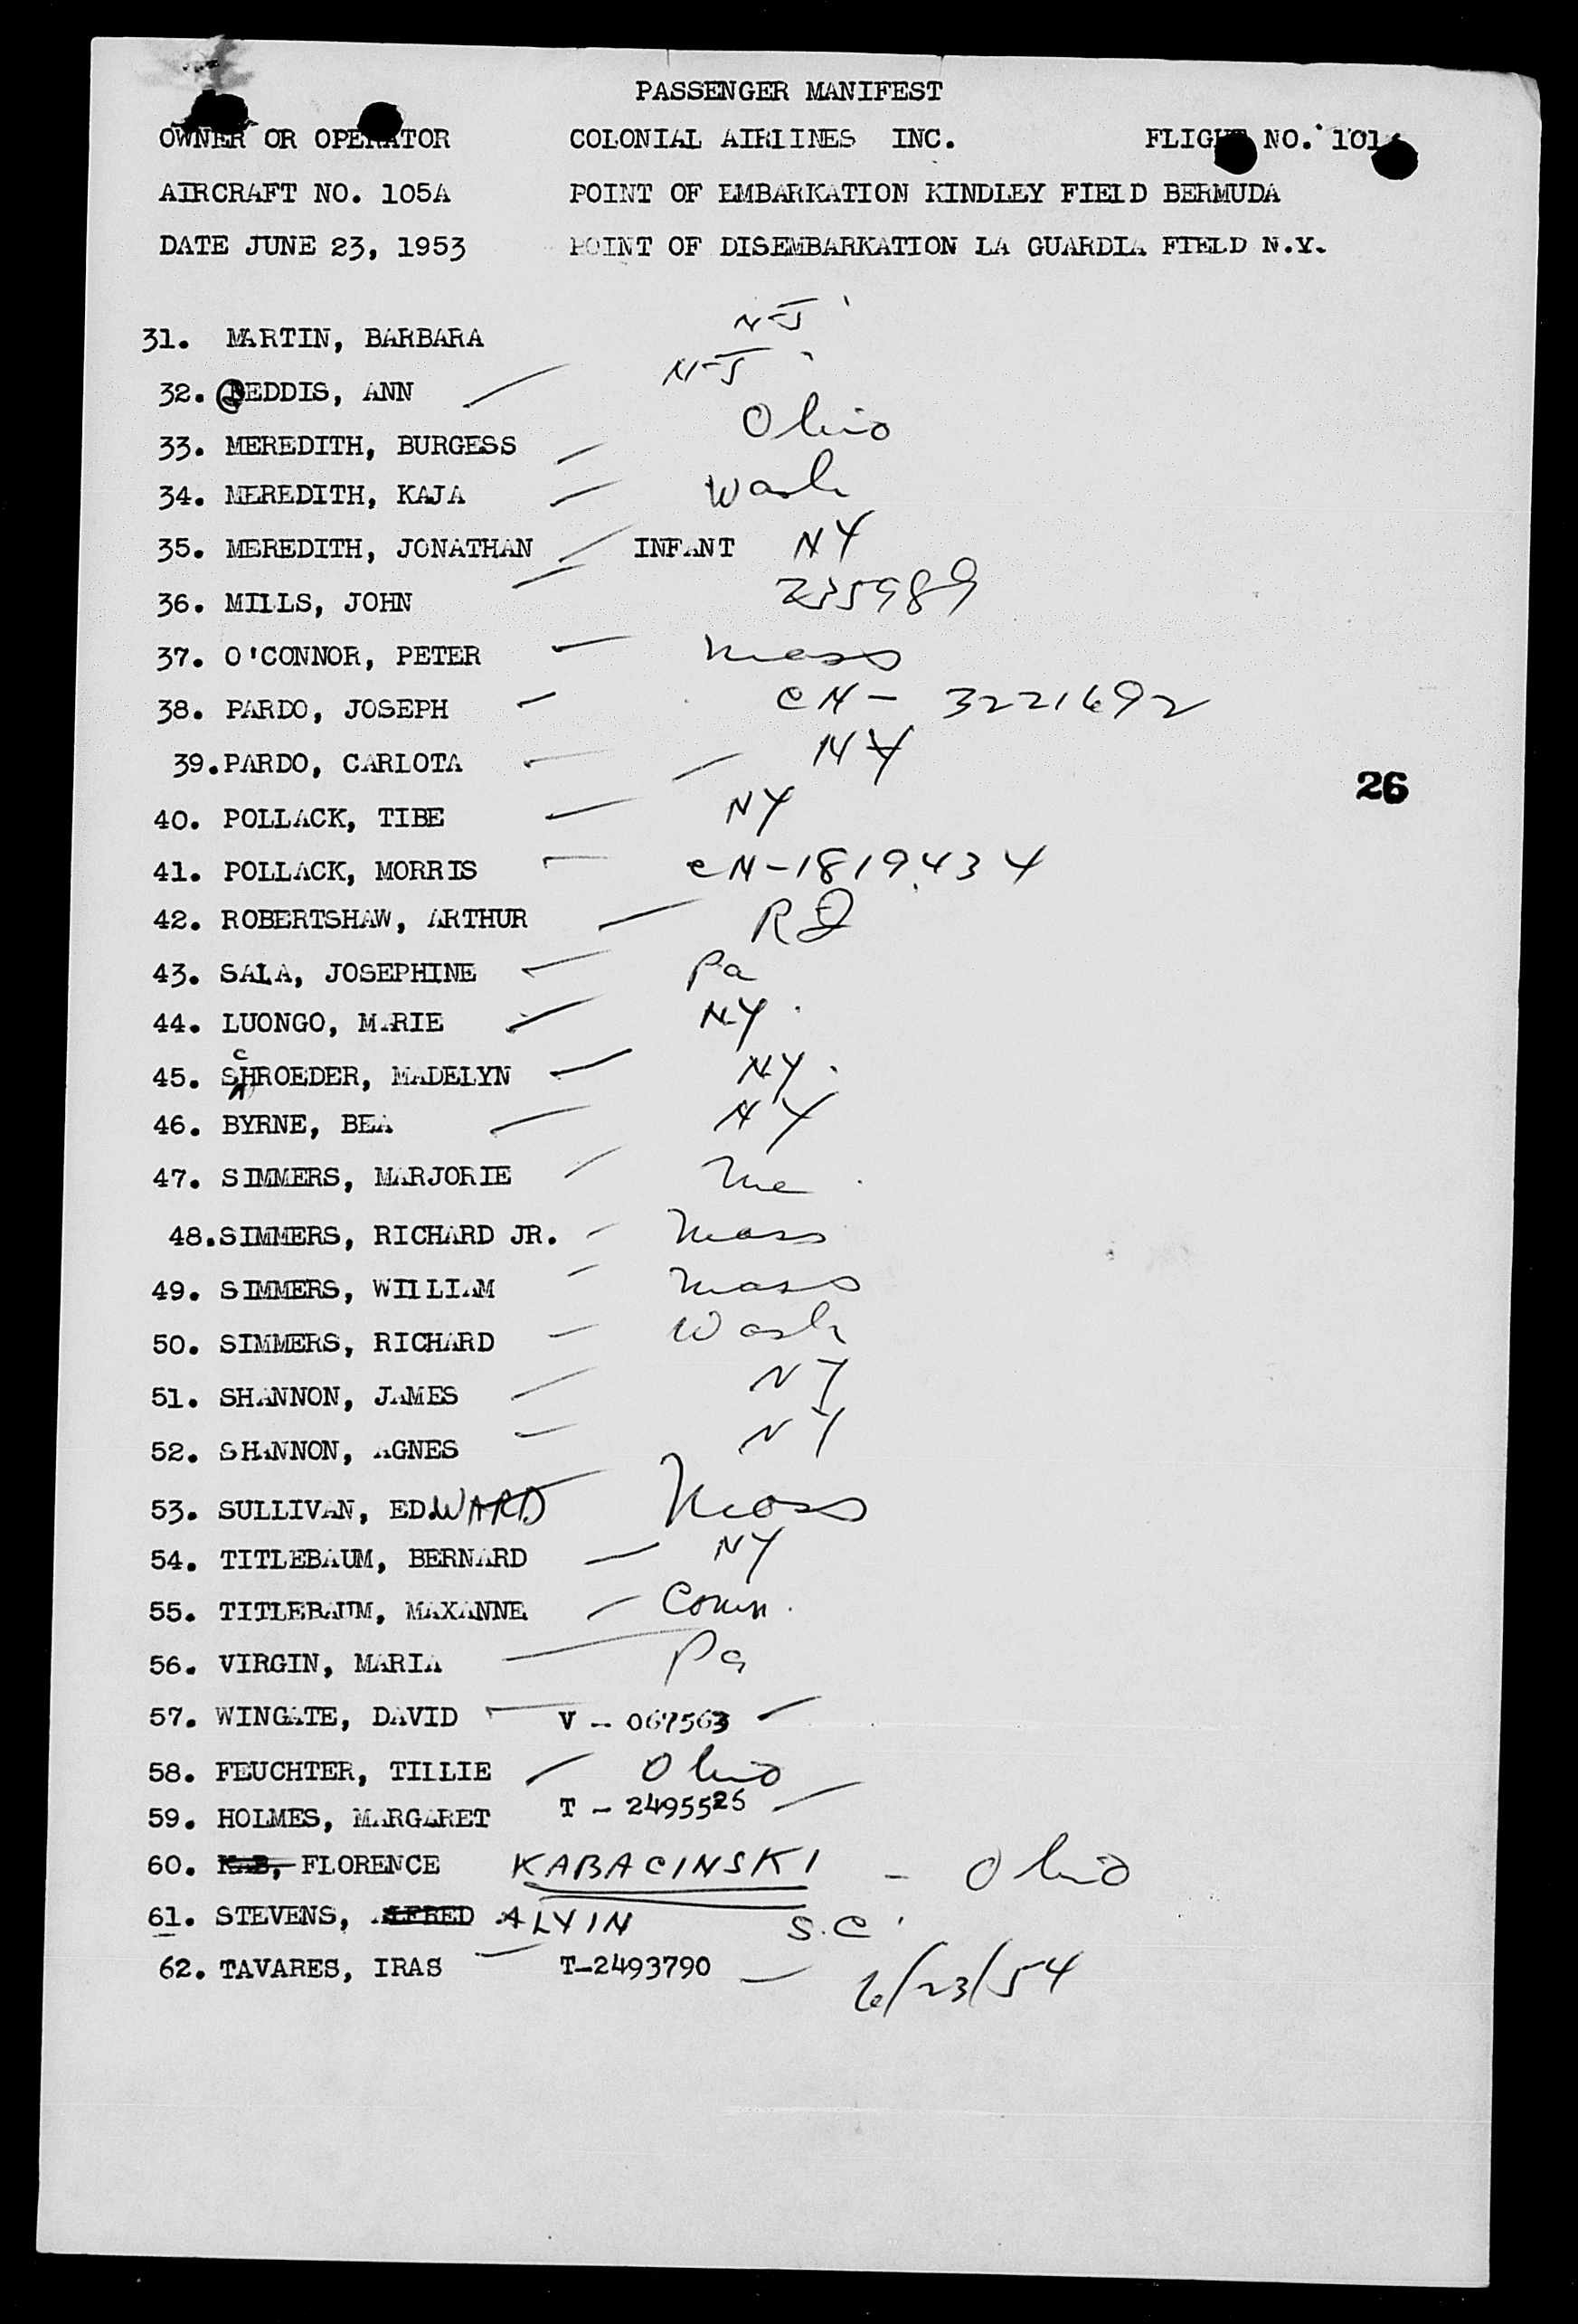 PASSENGER MANIFEST
OWNER OR OPERATOR COLONIAL AIRLINES INC. FLIGHT NO. 101
AIRCRAFT NO. 105A POINT OF EMBARKATION KINDLEY FIELD BERMUDA
DATE JUNE 23, 1953 POINT OF DISEMBARKATION LA GUARDIA FIELD N.Y.
31. MARTIN, BARBARA N-J
32. EDDIS, ANN N-J
33. MEREDITH, BURGESS Ohio
34. MEREDITH, KAJA Wash
35. MEREDITH, JONATHAN INFANT NY
36. MILLS, JOHN 235989
37. O'CONNOR, PETER Mass
38. PARDO, JOSEPH CN- 3221692
39. PARDO, CARLOTA NY
26
40. POLLACK, TIBE NY
41. POLLACK, MORRIS CN-1819434
42. ROBERTSHAW, ARTHUR RI
43. SALA, JOSEPHINE Pa
44. LUONGO, MARIE NY.
45. SCHROEDER, MADELYN NY.
46. BYRNE, BEA NY
47. SIMMERS, MARJORIE Me
48. SIMMERS, RICHARD JR. Mass
49. SIMMERS, WILLIAM Mass
50. SIMMERS, RICHARD Wash
51. SHANNON, JAMES NY
52. SHANNON, AGNES NY
53. SULLIVAN, EDWARD Mass
54. TITLEBAUM, BERNARD NY
55. TITLEBAUM, MAXANNE Conn.
56. VIRGIN, MARIA Pa
57. WINGATE, DAVID V - 067563
58. FEUCHTER, TILLIE Ohio
59. HOLMES, MARGARET T - 2495526
60. KAB, FLORENCE KABACINSKI - Ohio
61. STEVENS, ALFRED ALVIN S.C.
62. TAVARES, IRAS T-2493790 6/23/54